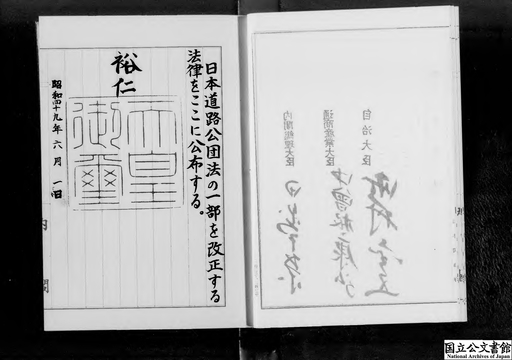 自治大臣
通商産業大臣
中曽根康弘
内閣総理大臣
日本道路公団法の一部を改正する
法律をここに公布する。
裕仁
天皇御璽
昭和四十九年六月一日
内閣
国立公文書館
National Archives of Japan